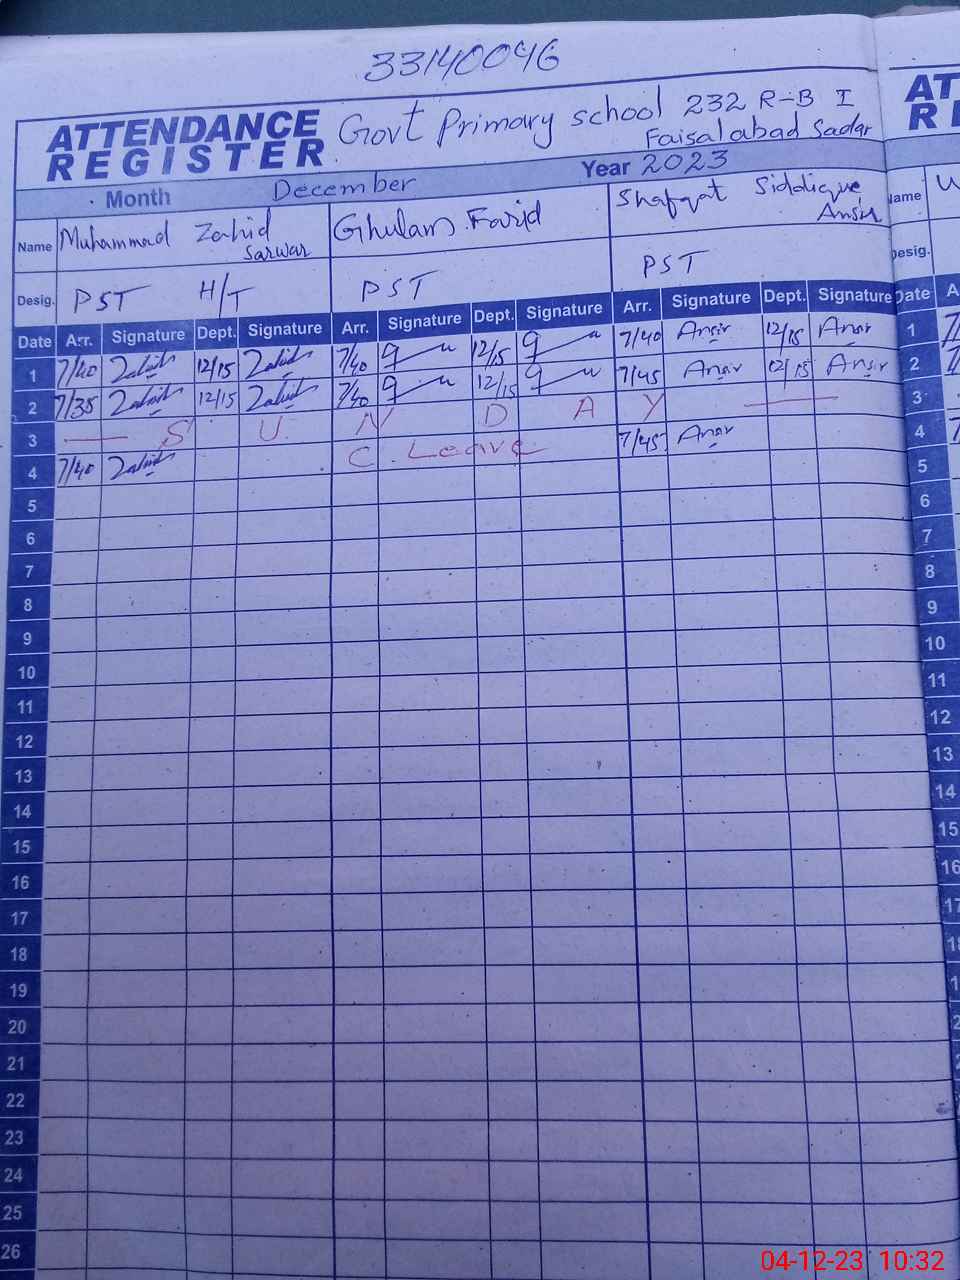 33140096
ATTENDANCE REGISTER Govt Primary school 232 R-B I
Faisalabad Sadar
Month December Year 2023
Name Muhammad Zahid Sarwar Ghulam Farid Shafqat Siddique Ansir
Desig. PST H/T PST PST
Date Arr. Signature Dept. Signature Arr. Signature Dept. Signature Arr. Signature Dept. Signature
1 7/40 Zahid 12/15 Zahid 7/40 12/15 7/40 Ansir 12/15 Ansir
2 7/35 Zahid 12/15 Zahid 7/40 12/15 7/45 Ansir 12/15 Ansir
3 — S U N D A Y —
4 7/40 Zahid C Leave 7/45 Ansir
5
6
7
8
9
10
11
12
13
14
15
16
17
18
19
20
21
22
23
24
25
26
AT
RE
Name
Desig.
Date A
1
2
3
4
5
6
7
8
9
10
11
12
13
14
15
16
17
04-12-23 10:32